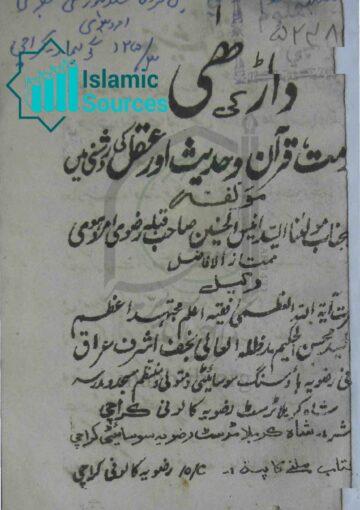 ۵۲۴۸
۱۲۵/۳
Islamic
Sources
داڑھی کی
مت، قرآن وحدیث اور عقل کی روشنی میں
مؤلفہ
جناب مولانا السید انیس الحسنین صاحب قبلہ رضوی امروہوی
ممتاز الافاضل
وکیل
رت آیۃ اللہ العظمیٰ فقیہ اعلم مجتہد اعظم
سید محسن الحکیم مدظلہ العالی نجف اشرف عراق
فی رضویہ ہاؤسنگ سوسائیٹی و متولی و منتظم مسجد و مدرسہ
شاہ کربلا ٹرسٹ رضویہ کالونی کراچی
شرہ۔ شاہ کربلا ٹرسٹ رضویہ سوسائیٹی کراچی
کتاب ملنے کا پتہ :۔ رضویہ کالونی کراچی